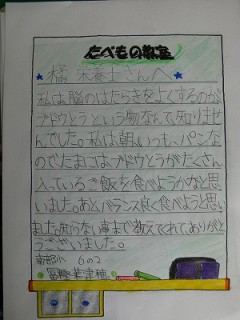 たべもの教室
橘 栄養士さんへ
私は、脳のはたらきをよくするのが
ブドウとうという物なんて、知りませ
んでした。私は、朝、いつも、パンな
のでたまにはブドウとうがたくさん
入っているご飯を食べようかなと思
いました。あと、バランス良く食べようと思い
ました。知らない事まで教えてくれて、ありがと
うございました。
南部小 6の2